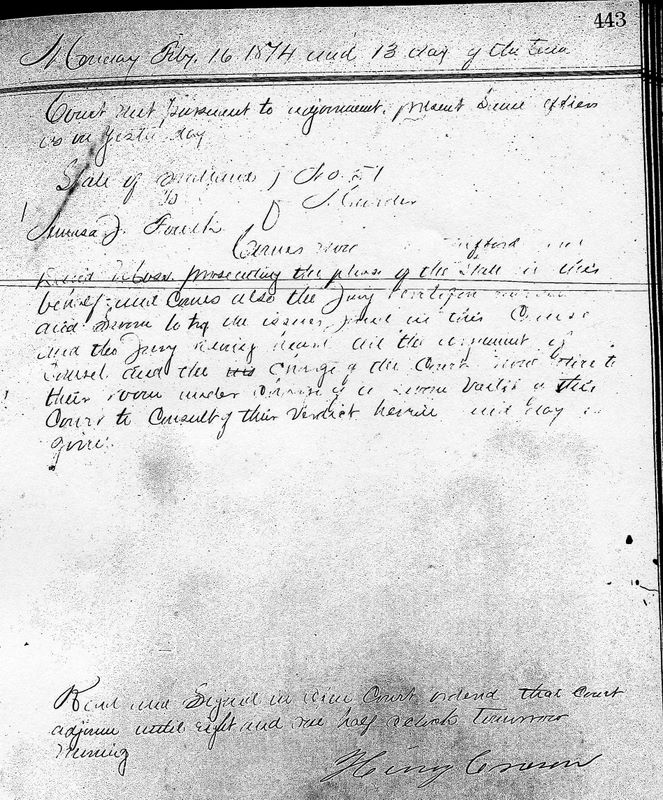 443
Monday Feby. 16 1874 and 13 day of the term
Court met pursuant to adjournment. present same officers
as on yesterday
State of Indiana } No. 51
vs
J.
Comes now
prosecuting the pleas of the State in this
behalf and comes also the Jury heretofore
and sworn to try the issues joined in this Cause
and the Jury having heard all the argument of
Counsel and the charge of the Court now retire to
their room under charge of a sworn Bailiff of this
Court to Consult of their verdict herein and day is
given.
Read and Signed in open Court ordered that Court
adjourn until eight and one half oclock tomorrow
morning